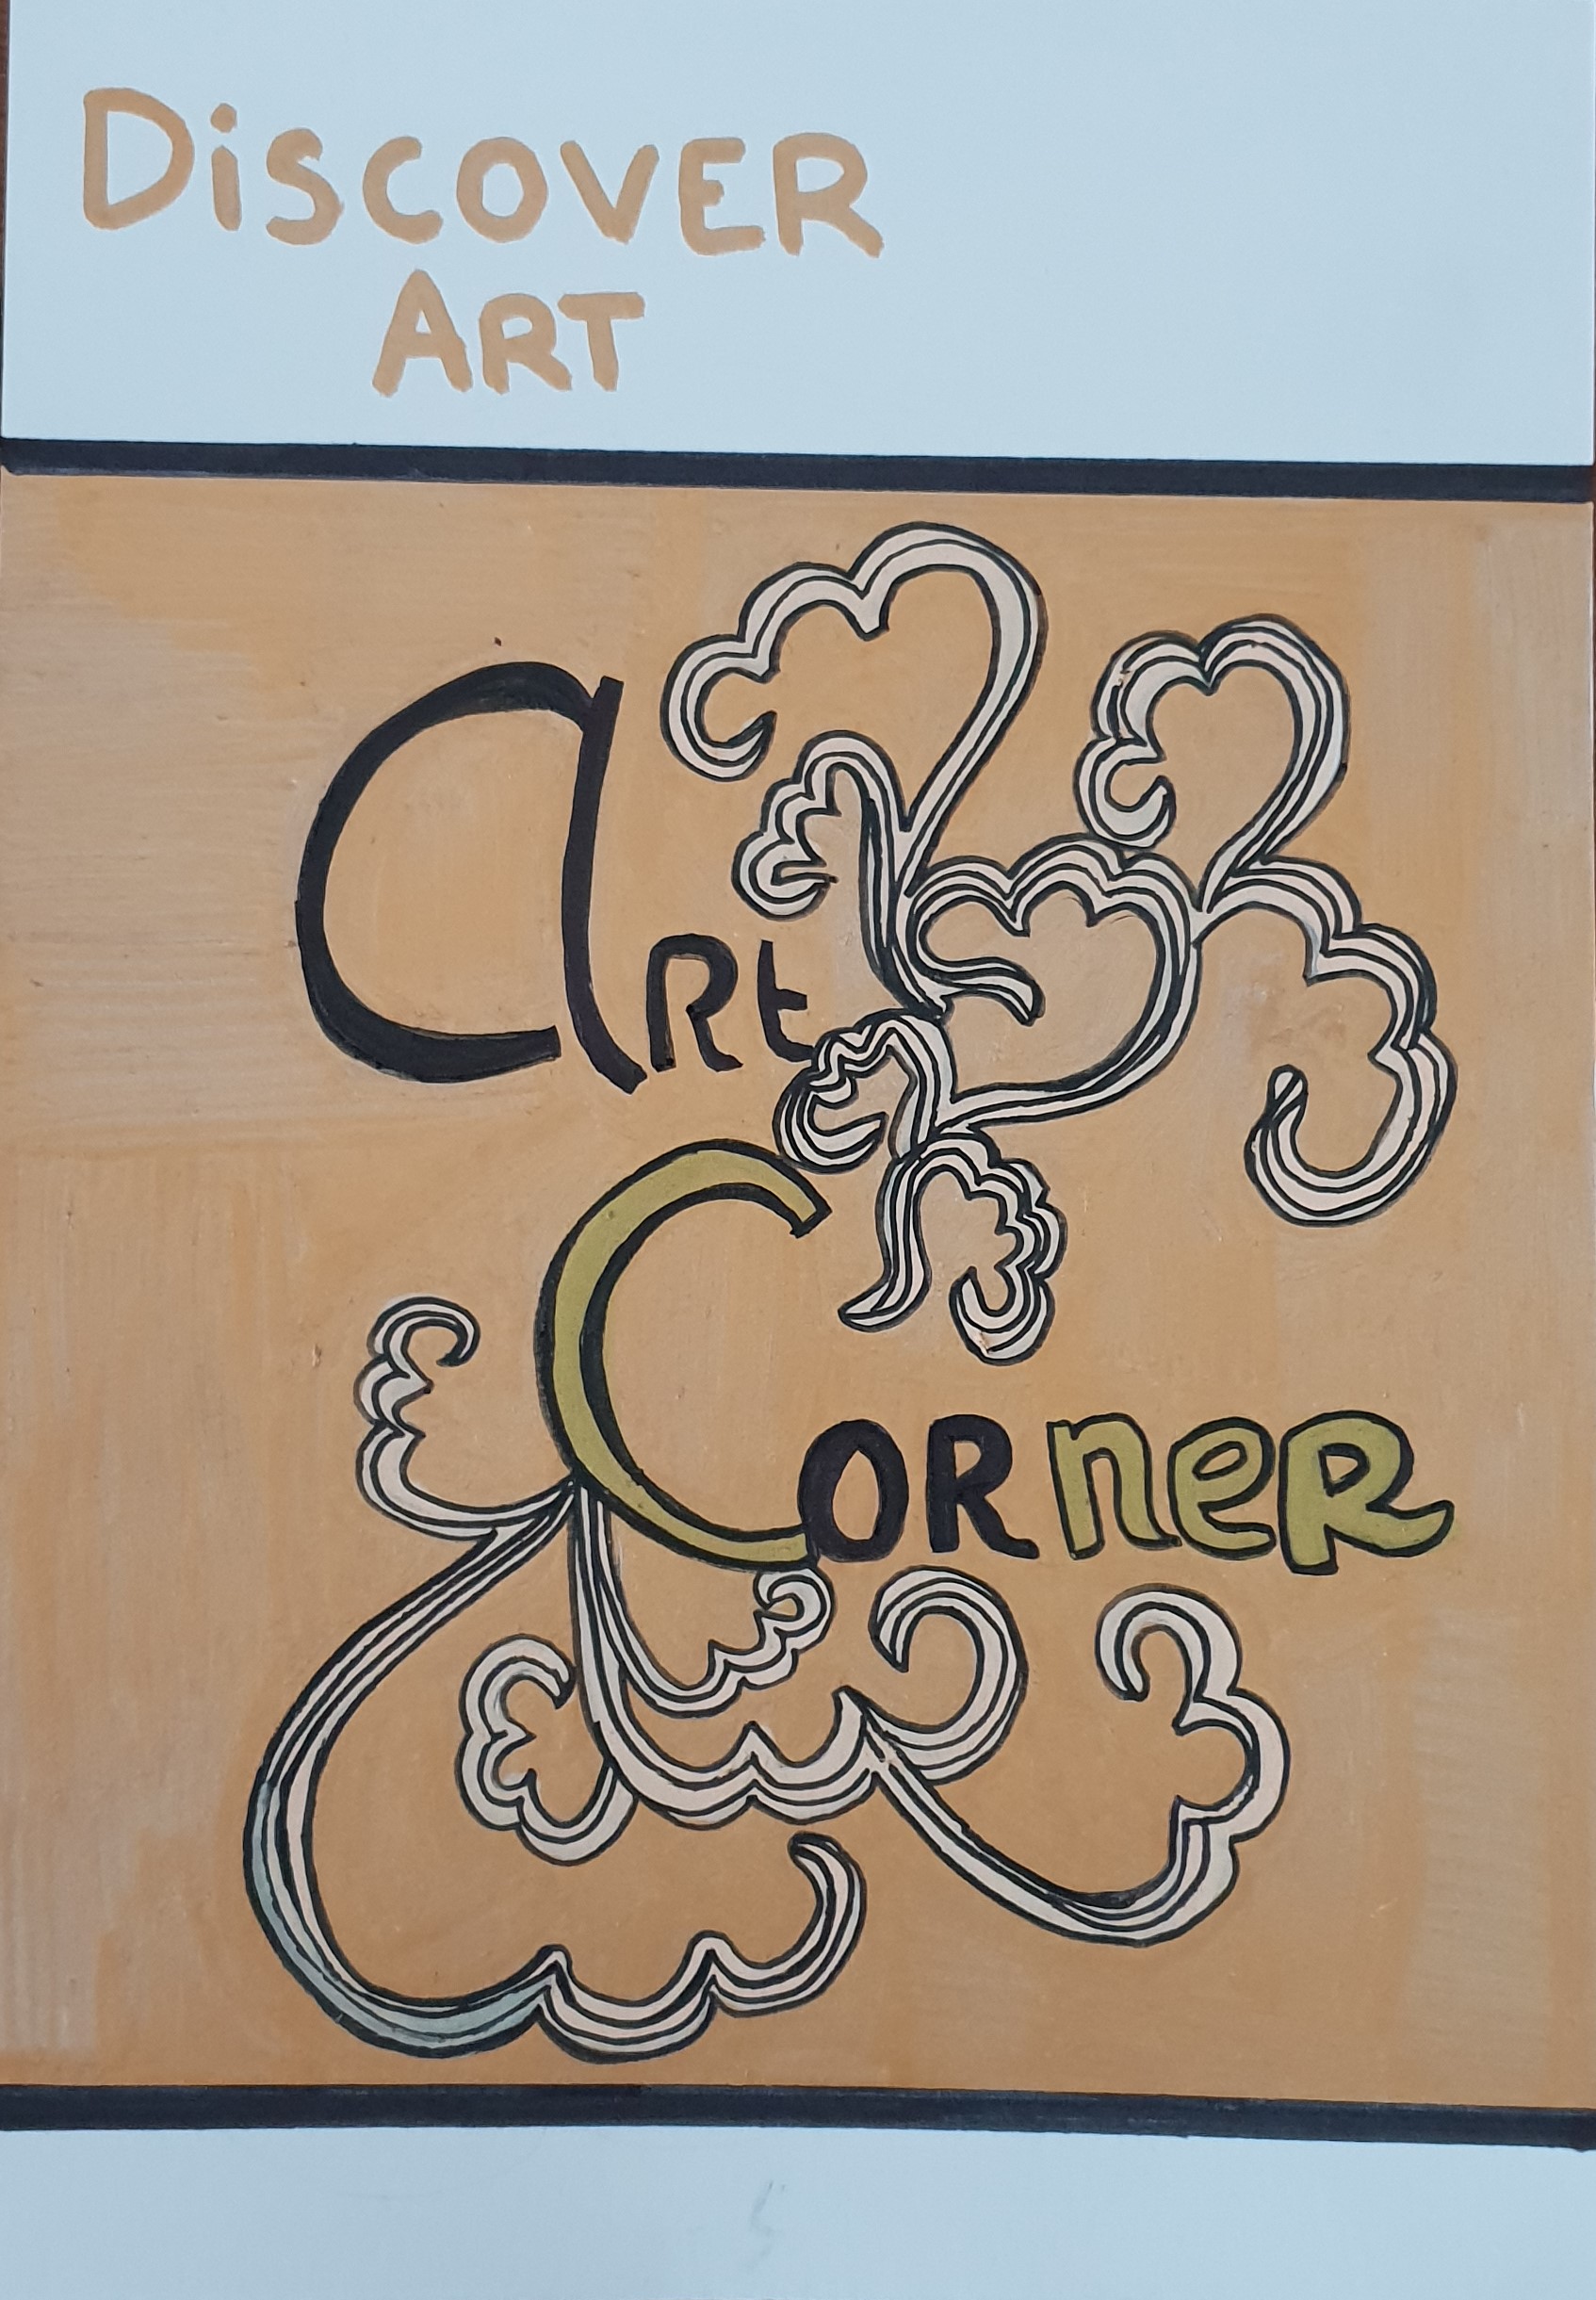 DiSCOVER
ART
aRt
CORneR